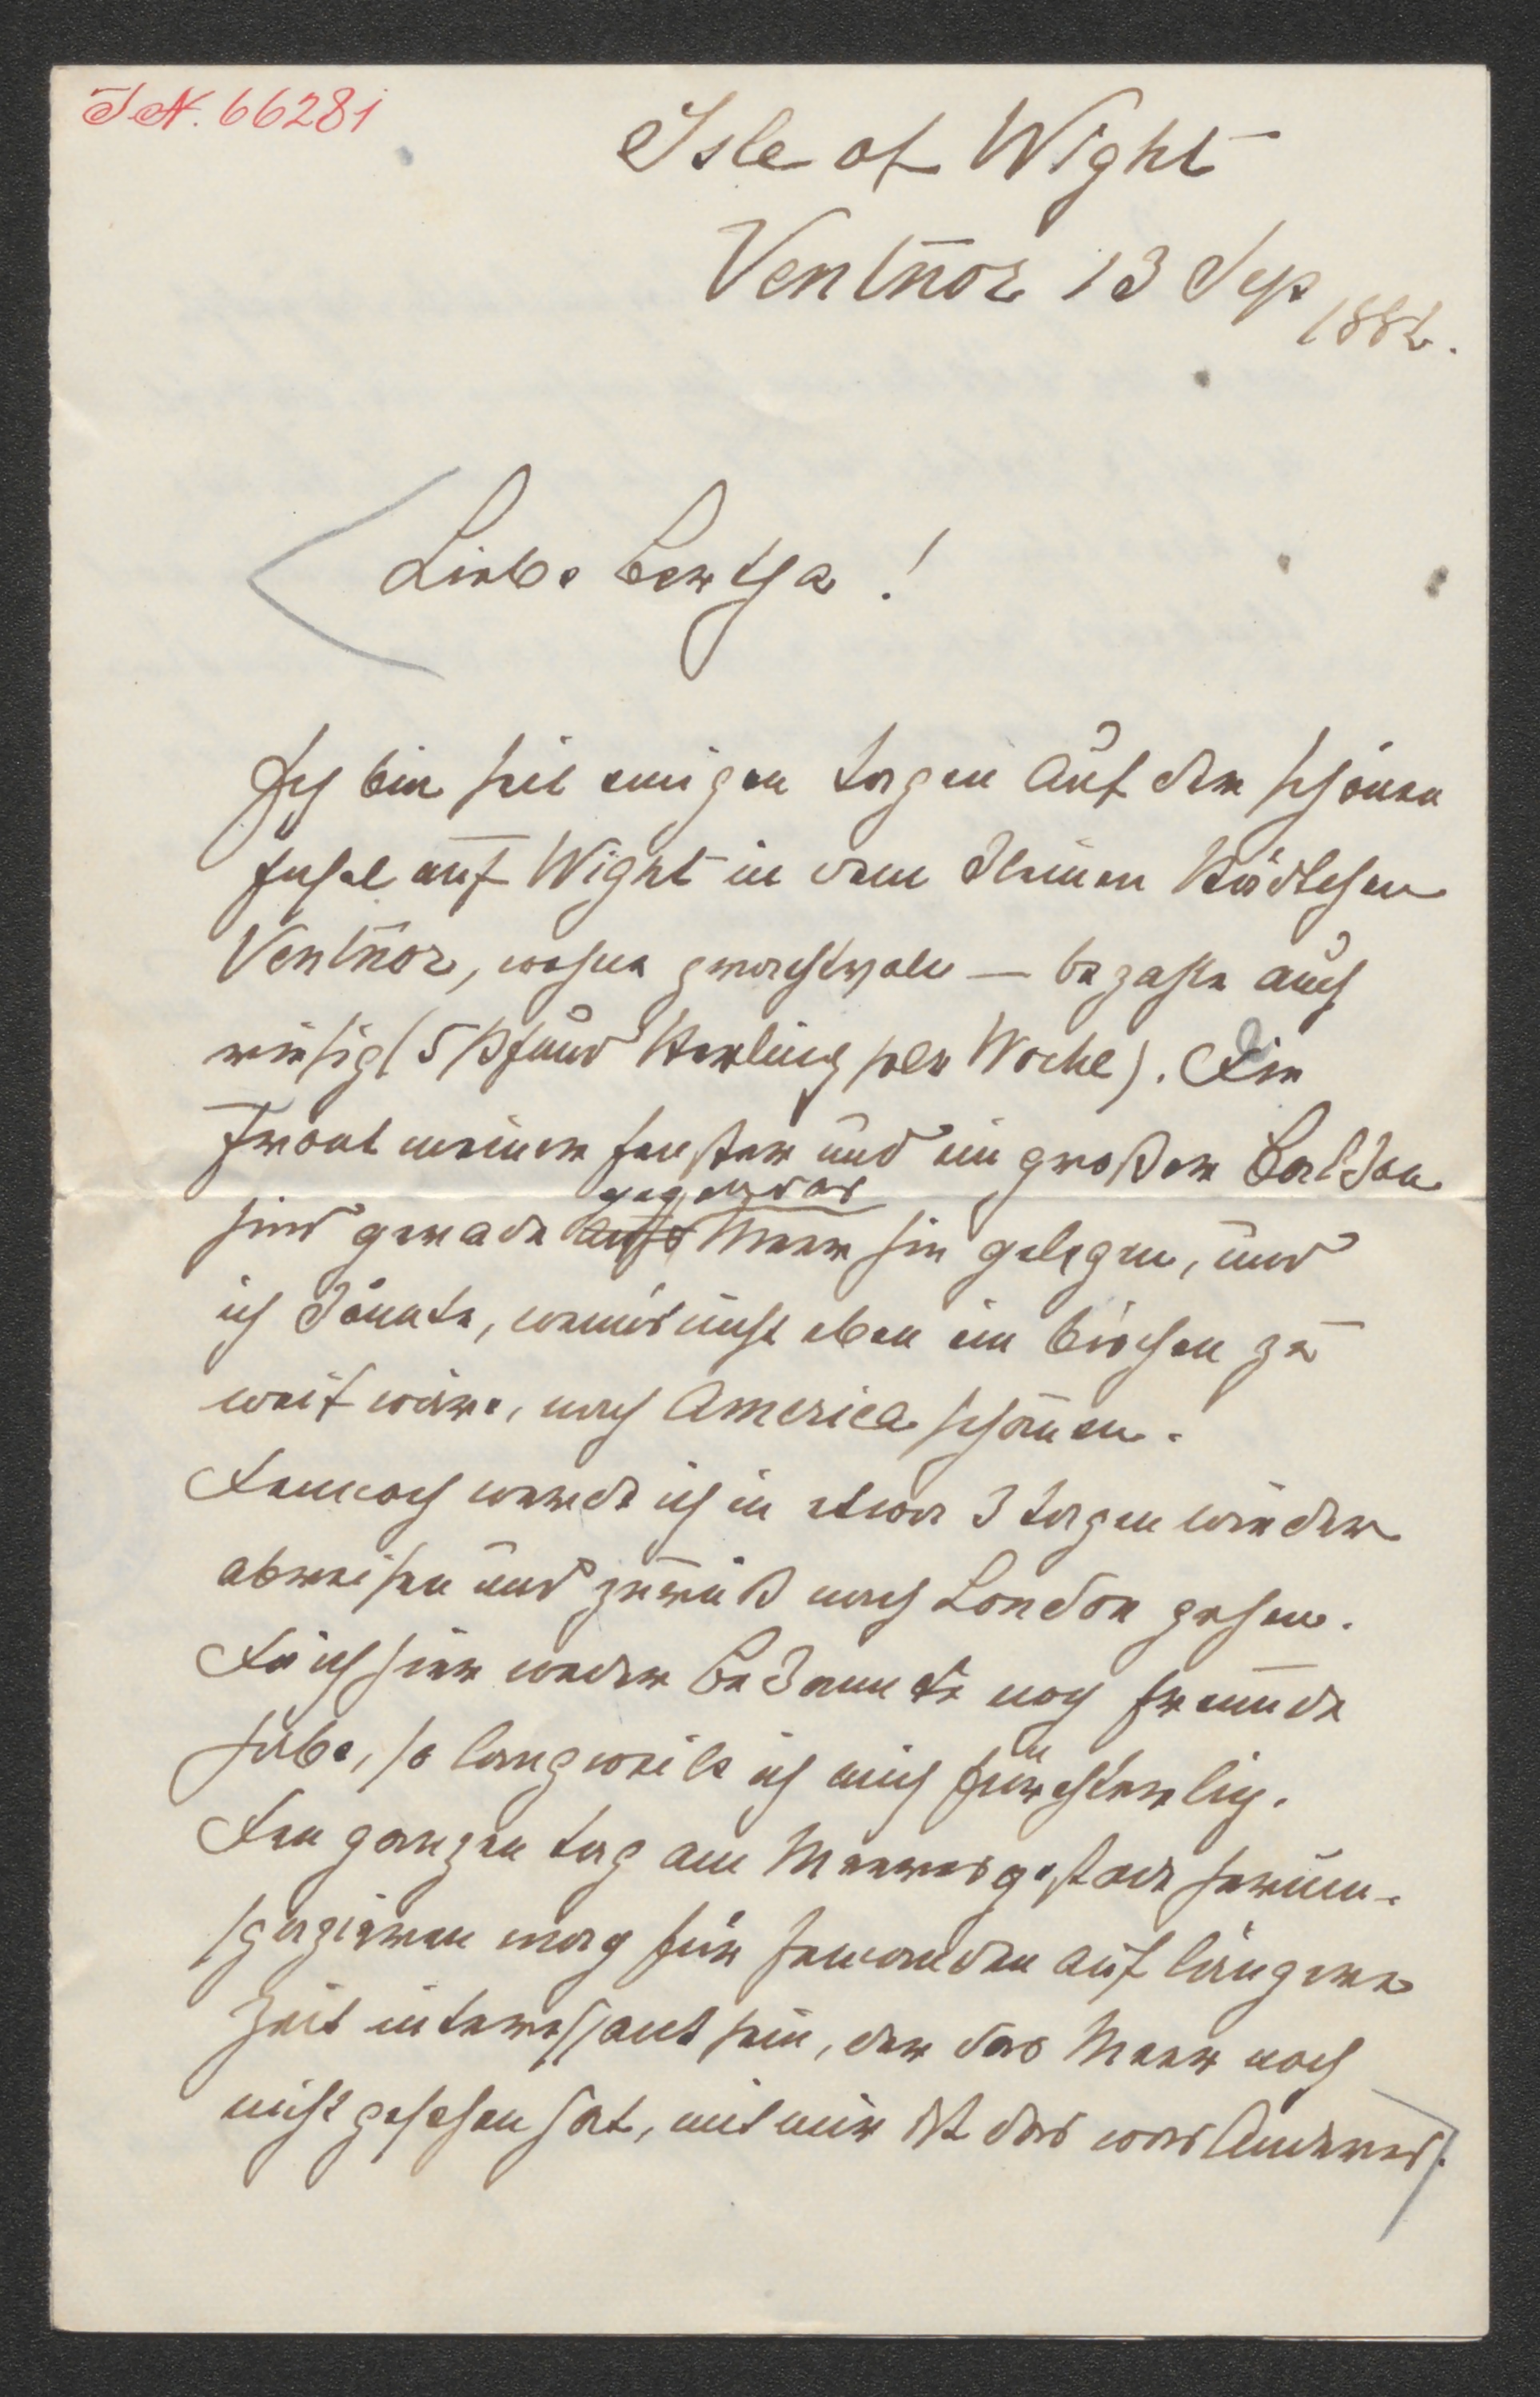 J.N. 66281
Isle of Wight
Ventnor 13 Sep
1882.
Liebe Bertha!
Ich bin seit einigen Tagen auf der schönen
Insel auf Wight in dem kleinen Städtchen
Ventnor, wohne prachtvoll — bezahle auch
riesig (5 Pfund Sterling per Woche). Die
Front meiner Fenster und ein großer Balkon
sind gerade aufs Meer hin gelegen, und
gegen das
ich könnte, wenn's nicht eben ein bischen zu
weit wäre, nach America schauen.
Dennoch werde ich in etwa 3 Tagen wieder
abreisen und zurük nach London gehen.
Da ich hier weder Bekannte noch Freunde
habe, so langweile ich mich fürchterlich.
Den ganzen Tag am Meeresgestade herum-
spazieren mag für Jemanden auf längere
Zeit interessant sein, der das Meer noch
nicht gesehen hat, mit mir ist das was Anderes.